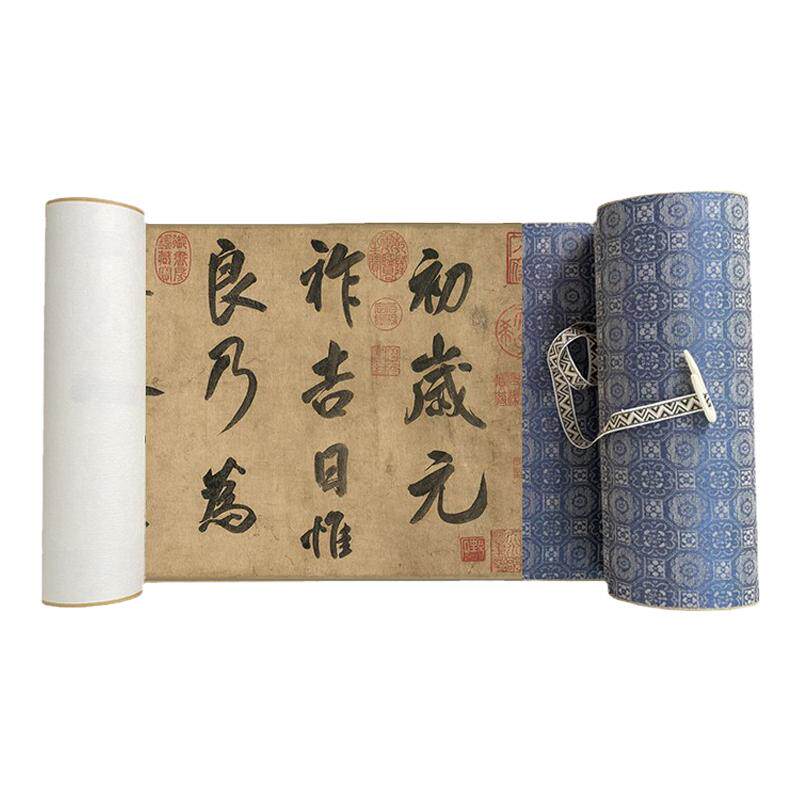 初歲元
祚吉日惟
良乃為